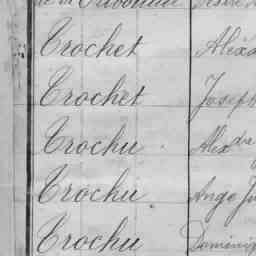 Trochet Alexa
Trochet Joseph
Trochu Alexdre
Trochu Ange Ju
Trochu Dominiq